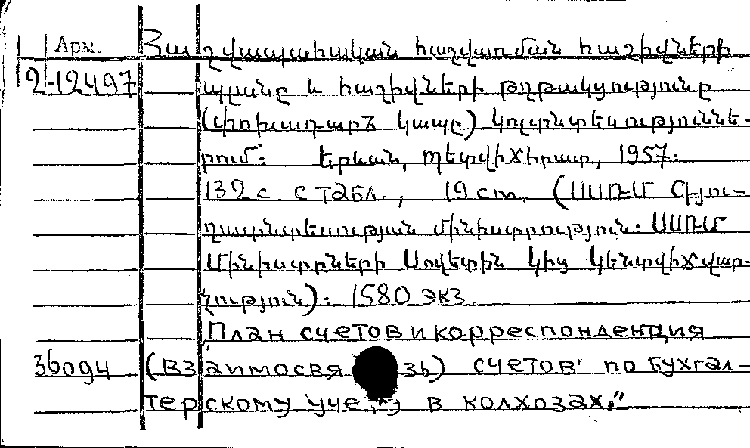 Арм. Հաշվապահական հաշվառման հաշիվների
2-12497 պլանը և հաշիվների թղթակցությունը
(փոխադարձ կապը) կոլտնտեսություննե-
րում: Երևան, Պետվիճհրատ, 1957.
132 с. с табл., 19 cm. (ՍՍՌՄ Գյու-
ղատնտեսության մինիստրություն. ՍՍՌՄ
Մինիստրների Սովետին կից կենտվիճվար-
չություն): 1580 экз.
"План счетов и корреспонденция
36094 (взаимосвязь) счетов по бухгал-
терскому учету в колхозах."